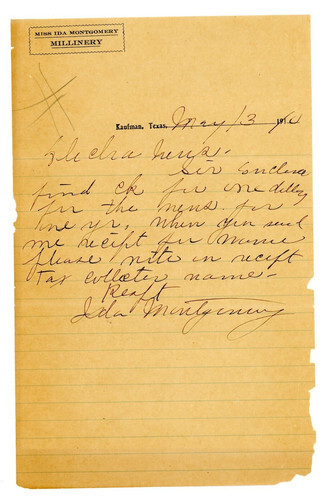 MISS IDA MONTGOMERY
MILLINERY
Kaufman, Texas, May 13 1914
Electra News.
Sir Enclose
find ck for one dollar
for the news for
one yr, when you send
me recipt for
please note in recipt
Tax collecter name-
Resft
Ida Montgomery